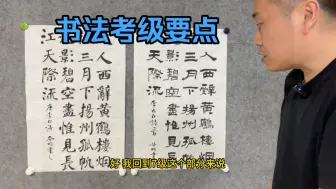 书法考级要点
人西辭黄鶴樓烟
三月下揚州孤帆
影碧空盡惟見長
天際流
人西辭黄鶴樓烟
三月下揚州孤帆
影碧空盡惟見長
江天際流
好 我回到7级这个部孙来说